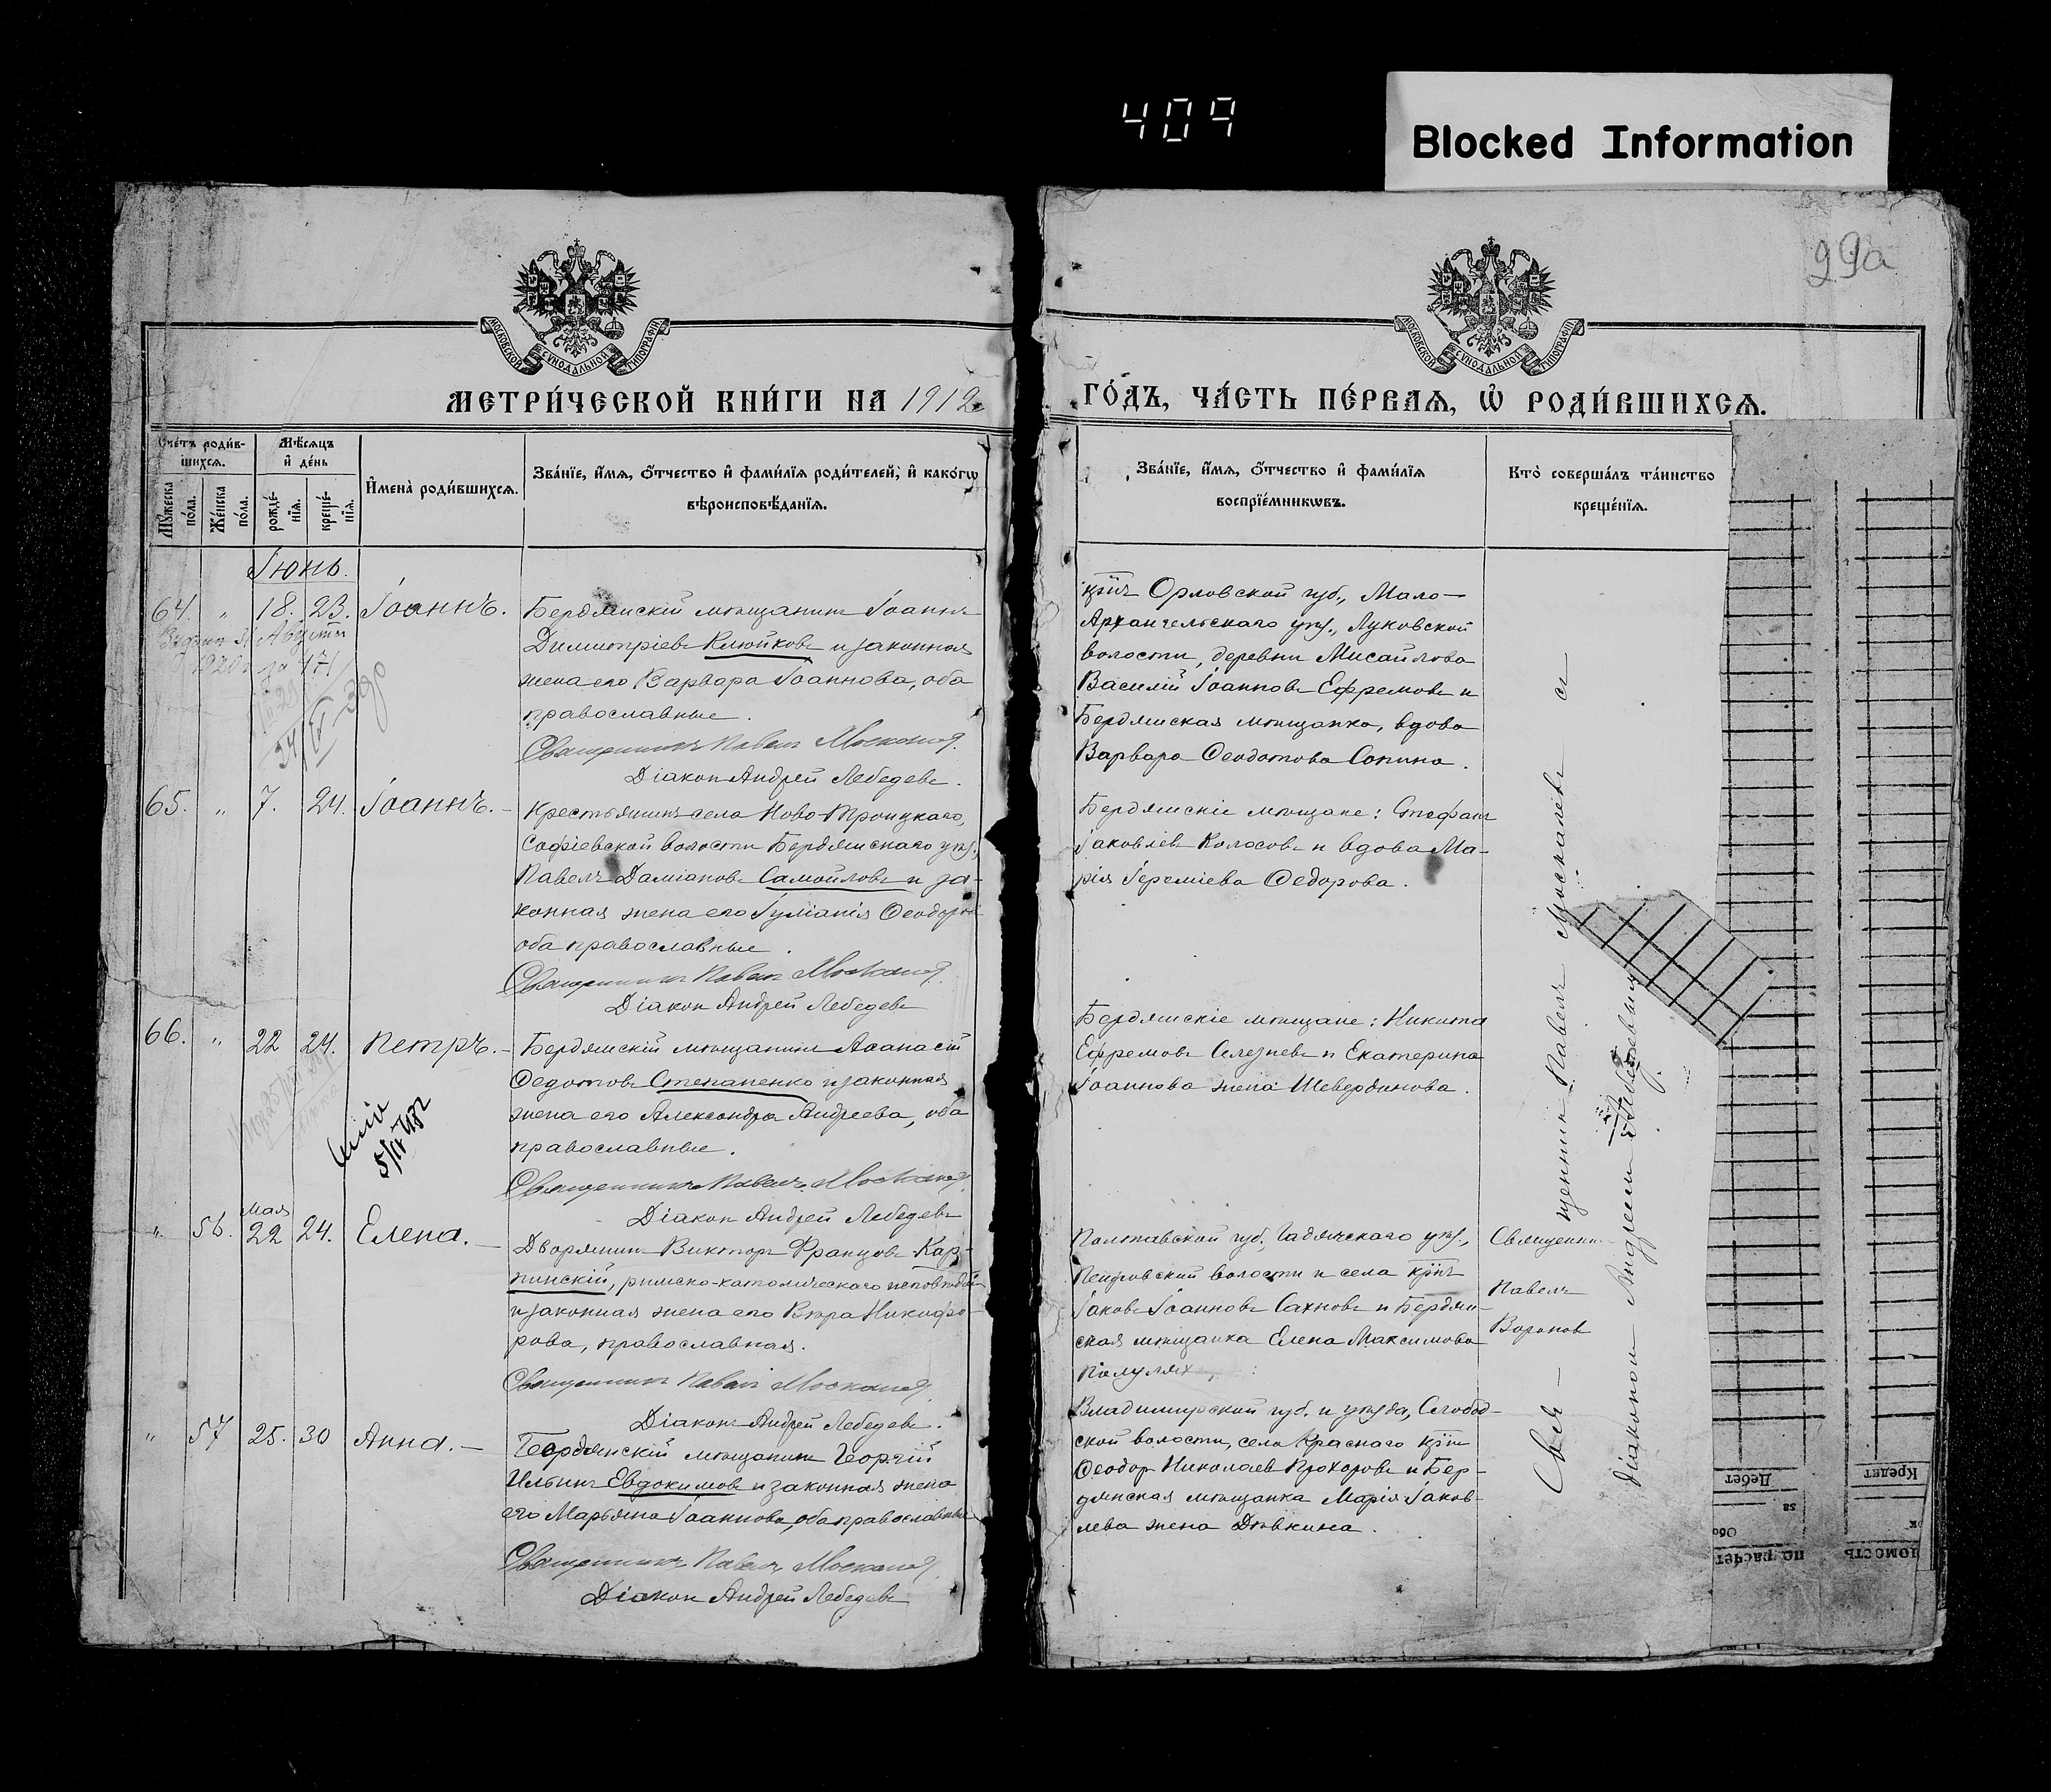 409
Blocked Information
29а
МОСКОВСКОЙ СѴНОДАЛЬНОЙ ТИПОГРАФІИ
МОСКОВСКОЙ СѴНОДАЛЬНОЙ ТИПОГРАФІИ
МЕТРИ́ЧЕСКОЙ КНИ́ГИ НА 1912
ГО́ДЪ, ЧА́СТЬ ПЕ́РВАѦ, Ѽ РОДИ́ВШИХСѦ.
Сче́тъ роди́в-
шихсѧ.
Мѣ́сѧцъ
и҆ де́нь
Мꙋ́жеска
по́ла.
Же́нска
по́ла.
рожде́-
нїѧ.
креще́-
нїѧ.
И҆мена̀ роди́вшихсѧ.
Зва́нїе, и҆́мѧ, ѻ҆́тчество и҆ фами́лїѧ роди́телей, и҆ како́гѡ
вѣроисповѣ́данїѧ.
Зва́нїе, и҆́мѧ, ѻ҆́тчество и҆ фами́лїѧ
воспрїе́мникѡвъ.
Кто̀ соверша́лъ та́инство
креще́нїѧ.
Іюнь.
64. " 18. 23. Іоаннъ.
Бердянскій мѣщанинъ Іоаннъ
Димитріевъ Клюйковъ и законная
жена его Варвара Іоаннова, оба
православные.
Священникъ Павелъ Москалевъ
Діаконъ Андрей Лебедевъ.
крнъ Орловской губ., Мало-
Архангельскаго уѣз., Луковской
волости, деревни Мисайлова
Василій Іоанновъ Ефремовъ и
Бердянская мѣщанка, вдова
Варвара Ѳеодотова Сопина.
65. " 7. 24. Іоаннъ. -
Крестьянинъ села Ново-Троицкаго,
Софіевской волости Бердянскаго уѣз.,
Павелъ Даміановъ Самойловъ и за-
конная жена его Іуліанія Ѳеодоров
оба православные.
Священникъ Павелъ Москалевъ
Діаконъ Андрей Лебедевъ
Бердянскіе мѣщане: Стефанъ
Іаковлевъ Колосовъ и вдова Ма-
рія Іереміева Ѳедорова.
66. " 22 24. Петръ. -
Бердянскій мѣщанинъ Аѳанасій
Ѳедотовъ Степаненко и законная
жена его Александра Андреева, оба
православные.
Священникъ Павелъ Москалевъ
Діаконъ Андрей Лебедевъ
Бердянскіе мѣщане: Никита
Ефремовъ Селезневъ и Екатерина
Іоаннова жена Шевердинова.
Мая
" 56. 22 24. Елена. -
Дворянинъ Викторъ Францовъ Кар-
пинскій, римско-католическаго исповѣдан
и законная жена его Вѣра Никифо-
рова, православная.
Священникъ Павелъ Москалевъ
Діаконъ Андрей Лебедевъ.
Полтавской губ., Гадячскаго уѣз.,
Петровской волости и села крнъ
Іаковъ Іоанновъ Сахновъ и Бердян-
ская мѣщанка Елена Максимова
Священник
Павелъ
Вороновъ
" 57 25. 30 Анна. -
Бердянскій мѣщанинъ Георгій
Ильинъ Евдокимовъ и законная жена
его Марьяна Іоаннова, оба православные
Священникъ Павелъ Москалевъ
Діаконъ Андрей Лебедевъ
Владимірской губ. и уѣзда, Слобод-
ской волости, села Краснаго крнъ
Ѳеодоръ Николаевъ Прохоровъ и Бер-
дянская мѣщанка Марія Іаков-
лева жена Дѣвкина.
Свя-
щенникъ Павелъ Москалевъ съ
діакономъ Андреемъ Лебедевымъ
Дебет
Кредит
за
по расчет